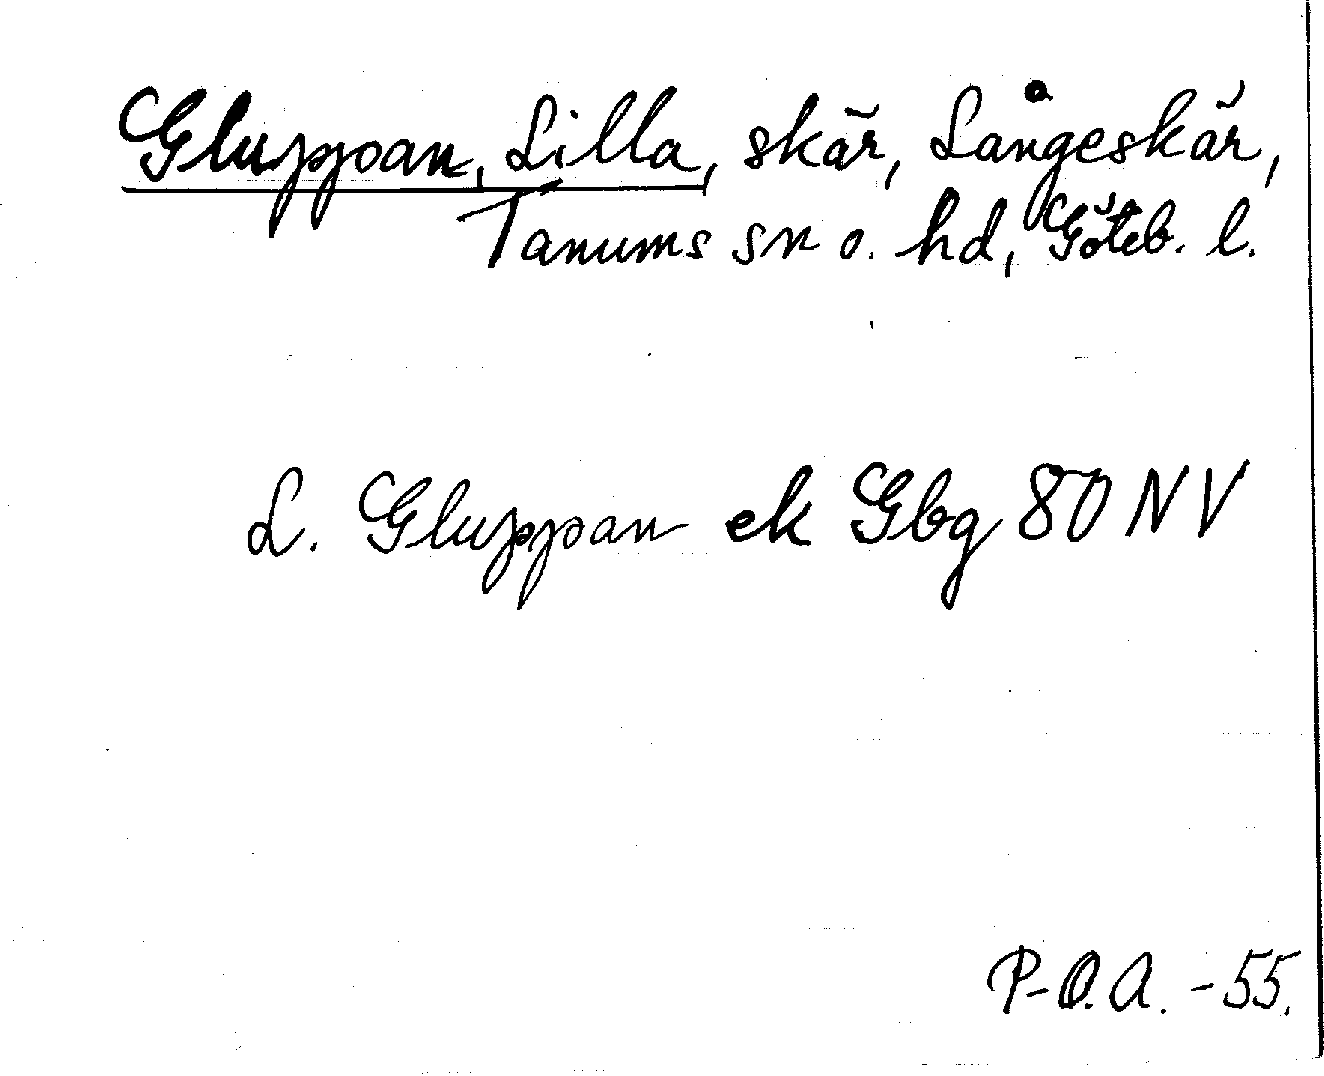 Gluppan, Lilla, skär, Långeskär,
Tanums sn o. hd, Göteb. l.
L. Gluppan ek Gbg 80 NV
P-O.A. -55.